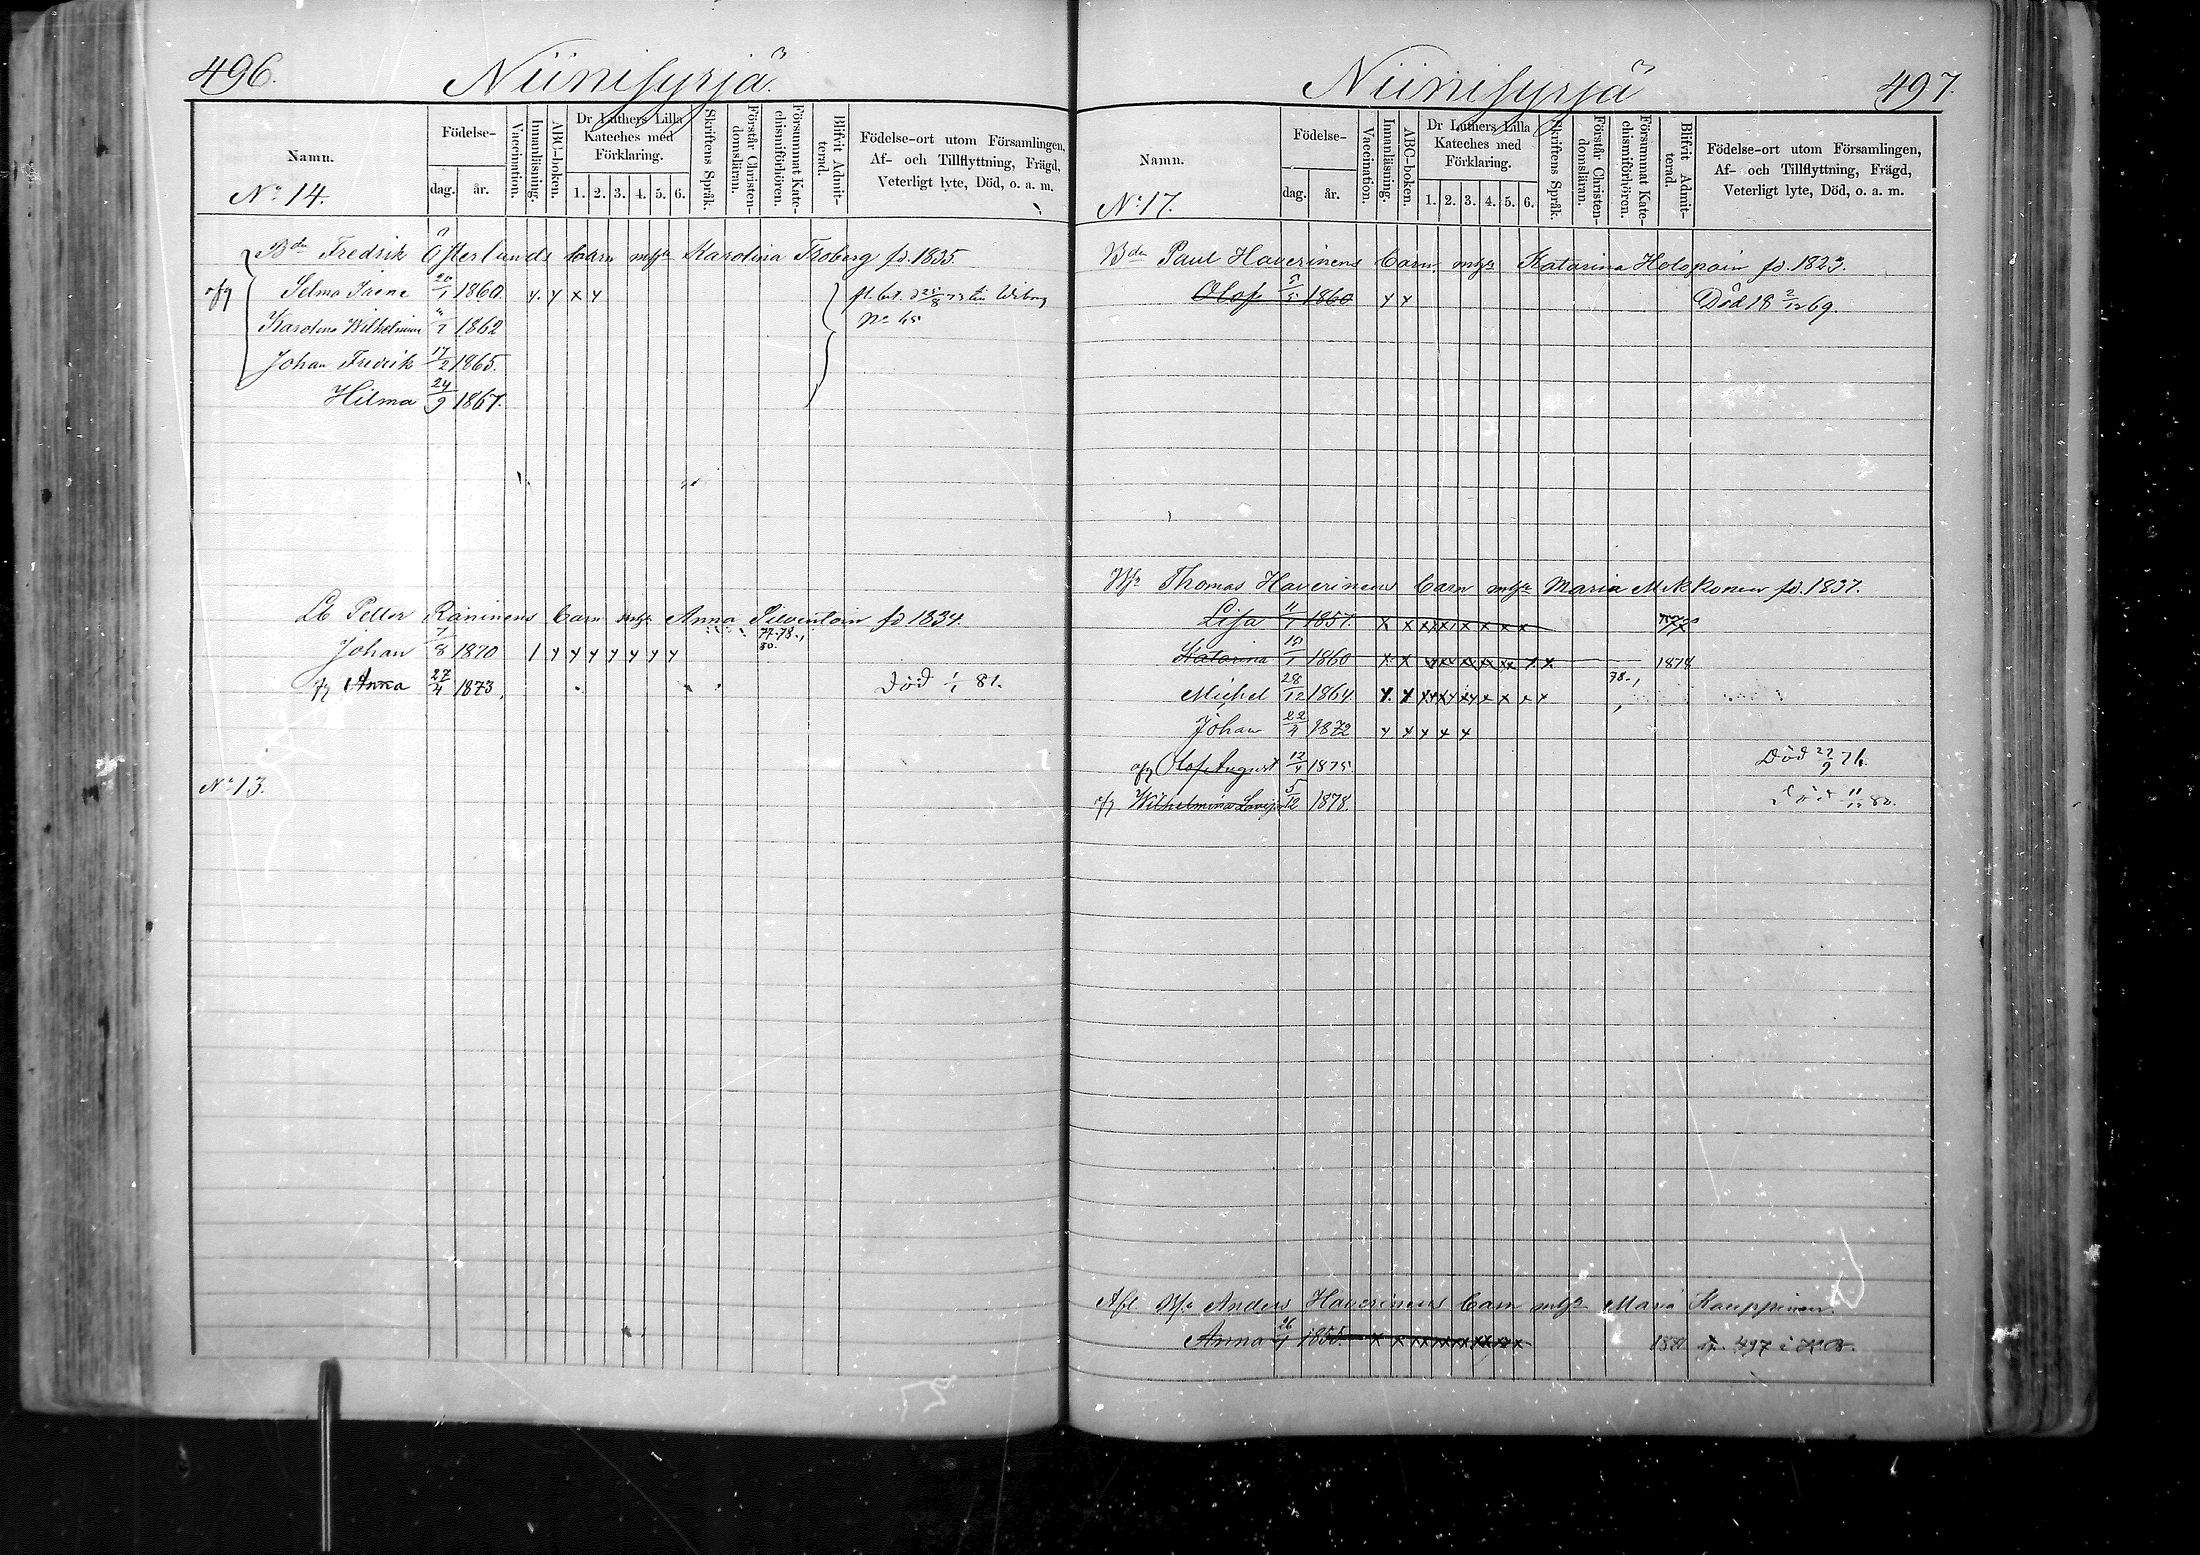 496. Niinisyrjä.
Namn.
Födelse-
dag. år.
Vaccination.
Innanläsning.
ABC-boken.
Dr Luthers Lilla Kateches med Förklaring.
1. 2. 3. 4. 5. 6.
Skriftens Språk.
Förstår Christendomsläran.
Försummat Katechismiförhören.
Blifvit Admitterad.
Födelse-ort utom Församlingen,
Af- och Tillflyttning, Frägd,
Veterligt lyte, Död, o. a. m.
No 14.
Bdn Fredrik Österlunds barn m/h Karolina Troberg fd. 1835
Selma Irene 1860 y. y x y fl. bet. d 25/8 73 till Wiborg
Karolina Wilhelmina 1862 No 45
Johan Fredrik 17/2 1865.
Hilma 24/9 1867.
Lb Petter Räninens barn m/h Anna Silventoin fd 1834.
Johan 7/8 1870 1 y y y y y y y 77-78., 80.
Anna 27/4 1873, Död 1/1 81.
No 13.
Niinisyrjä 497.
Namn.
Födelse-
dag. år.
Vaccination.
Innanläsning.
ABC-boken.
Dr Luthers Lilla Kateches med Förklaring.
1. 2. 3. 4. 5. 6.
Skriftens Språk.
Förstår Christendomsläran.
Försummat Katechismiförhören.
Blifvit Admitterad.
Födelse-ort utom Församlingen,
Af- och Tillflyttning, Frägd,
Veterligt lyte, Död, o. a. m.
No 17.
Bdn Paul Haverinens barn m/h Katarina Holopain fd. 1823.
Olof 5/5 1860 y y Död 18 2/12 69.
Thomas Haverinens barn m/h Maria Mikkonen fd. 1837.
Lisa 11/1 1857. x x x x x x x x x
Katarina 1860 x x x x x x x x x 1878
Michel 28/12 1864 y. y x x x x x x y 78.,
Johan 22/4 1872 y y y y y
Olof August 12/4 1875 Död 27/9 76.
Wilhelmina 5/12 1878. Död 11/12 80.
Afl Anders Haverinens barn m/h Maria Kauppinen.
Anna 26/1 1855 x x x x x x x x 497 i K.B.